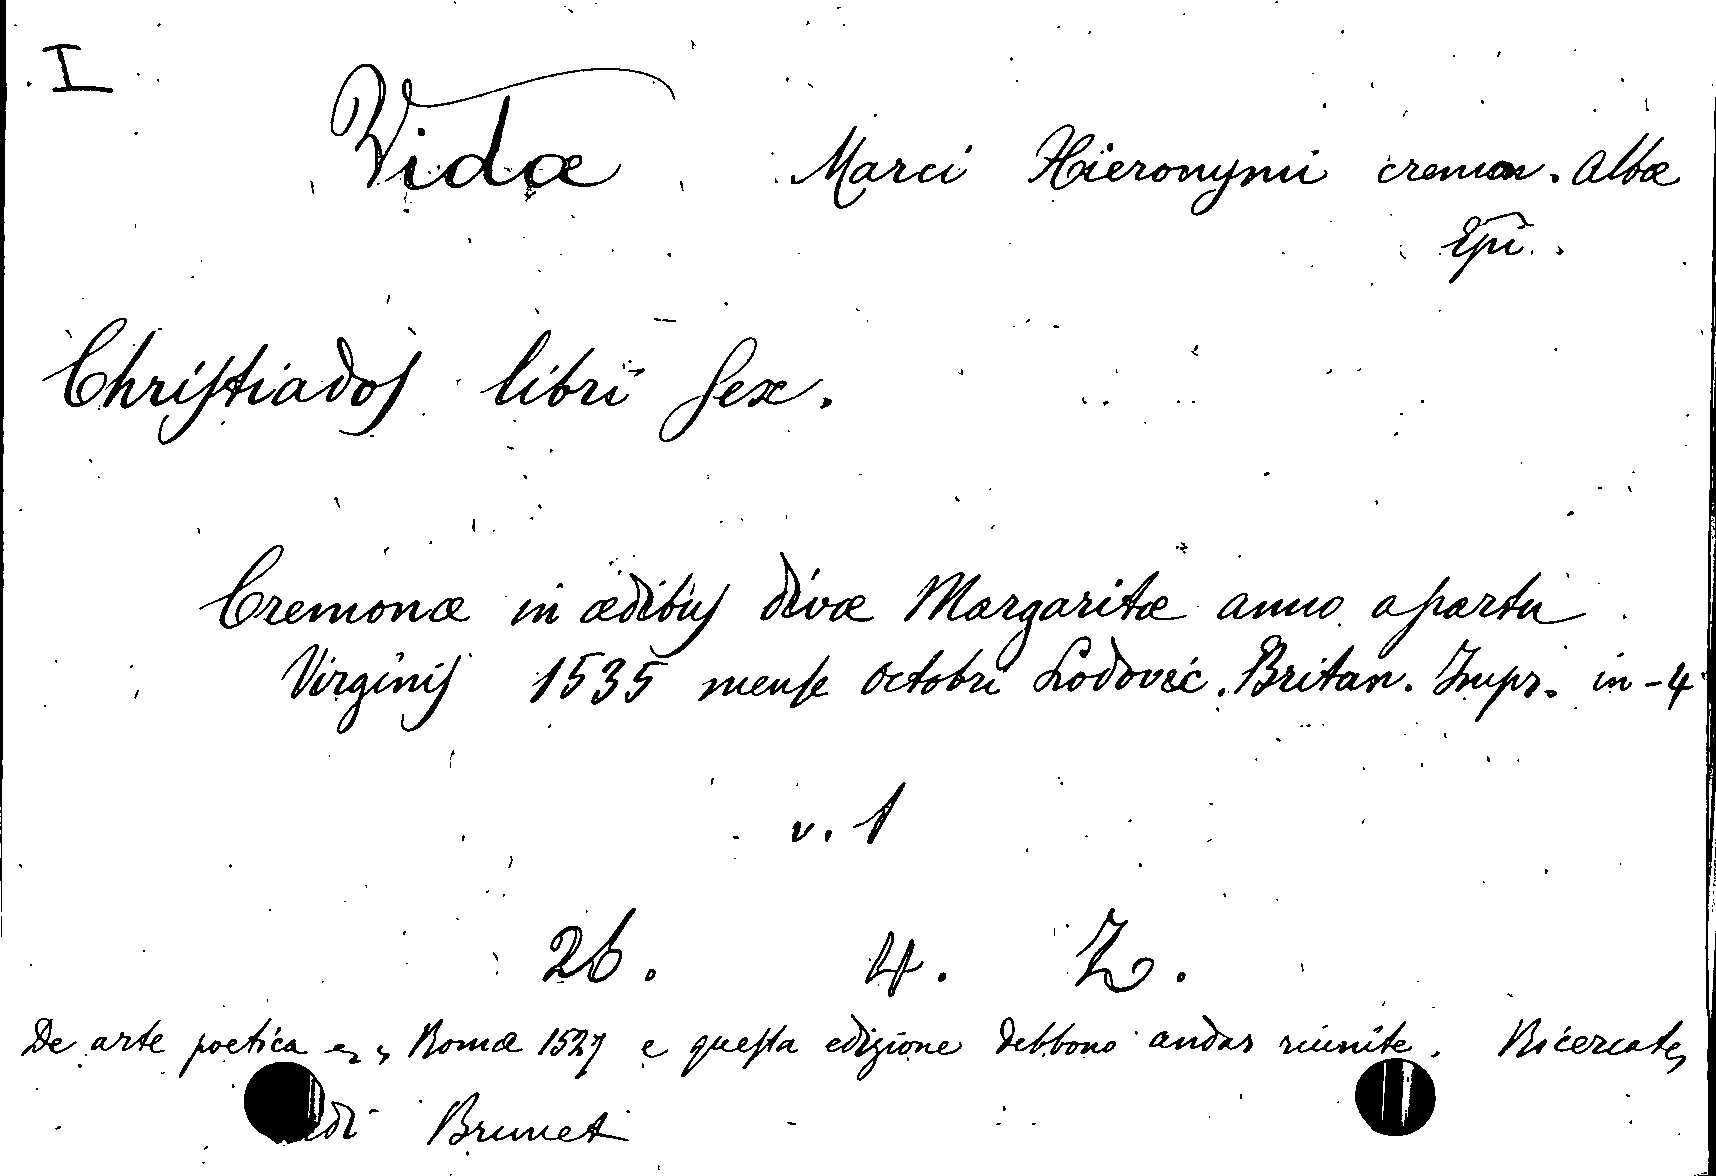 I
Vidæ Marci Hieronymi cremon. Albæ
Epi.
Chriſtiadoſ libri ſex.
Cremonæ in ædibuſ divæ Margaritæ anno a partu
Virginiſ 1535 menſe Octobri Lodovic. Britan. Impr. in-4
v. 1
26. 4. Z.
De arte poetica Romæ 1527 e queſta edizione debbono andar riunite. Ricercate,
Brunet